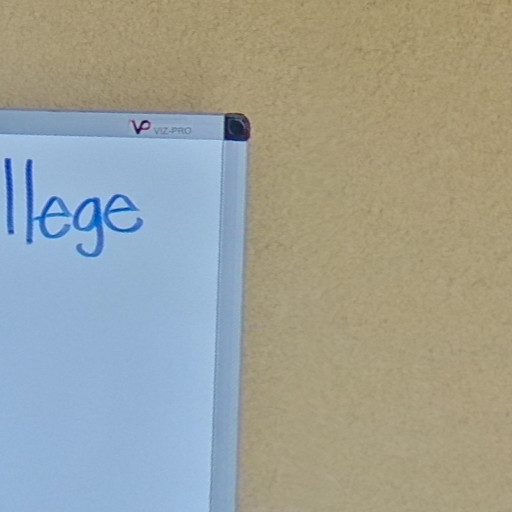 VP VIZ-PRO
llege